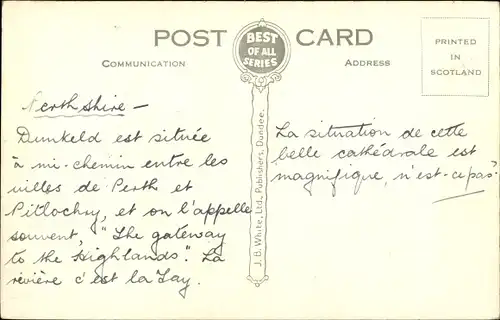 POST CARD
BEST
OF ALL
SERIES
COMMUNICATION
ADDRESS
PRINTED
IN
SCOTLAND
Perthshire -
Dunkeld est située
à mi-chemin entre les
villes de Perth et
Pitlochry, et on l'appelle
souvent, "The gateway
to the Highlands". La
rivière c'est la Tay.
J. B. White, Ltd., Publishers, Dundee.
La situation de cette
belle cathédrale est
magnifique, n'est-ce pas?